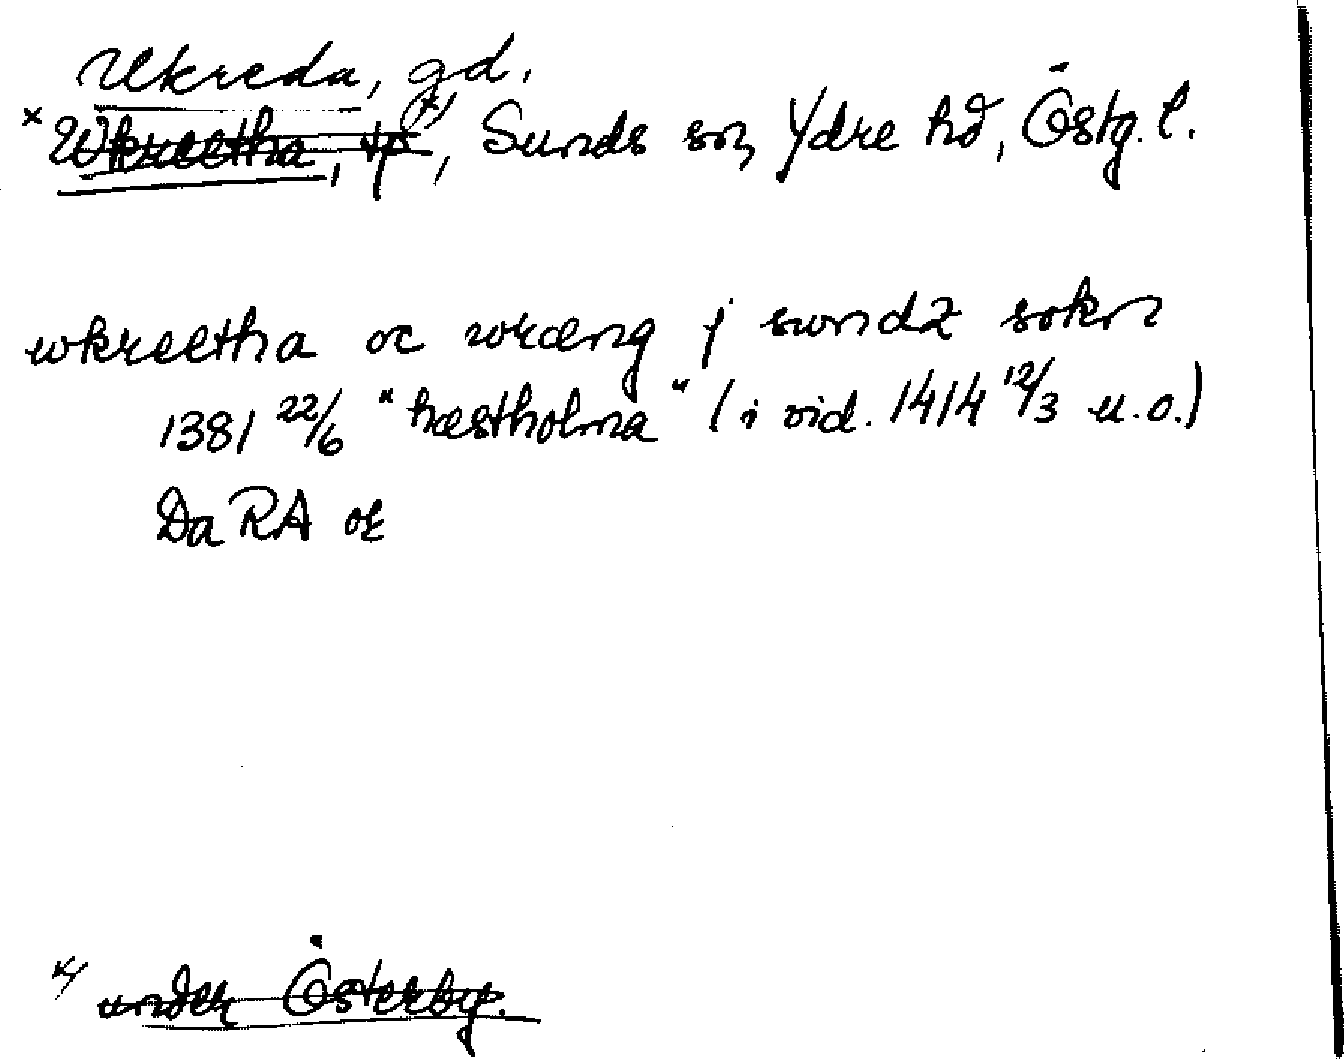 Ukreda, gd.
x Wkreetha, tp x), Sunds sn, Ydre hd, Östg. l.
wkreetha oc wræng j swndz sokn
1381 22/6 "hæstholma" (i vid. 1414 12/3 u.o.)
Da RA or
x) under Österby.